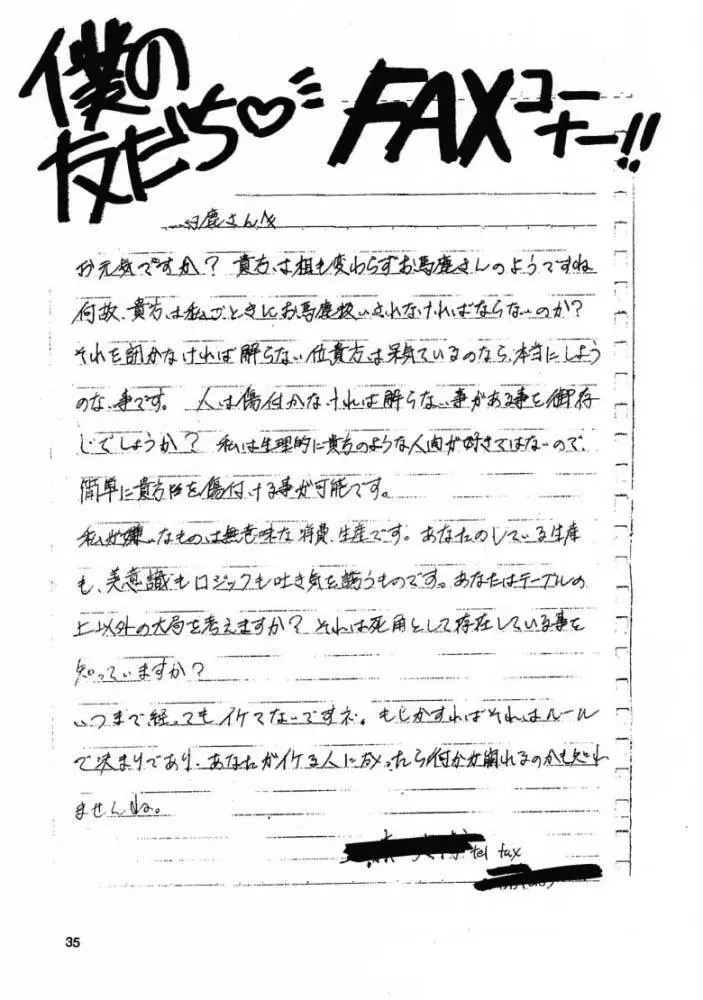 僕の
友だち♡ FAXコーナー!!
白鹿さんへ
お元気ですか? 貴方は相も変わらずお馬鹿さんのようですね
何故、貴方は私ごときにお馬鹿扱いされなければならないのか?
それを訊かなければ解らない位貴方は呆気ているのなら、本当にしよう
のない事です。 人は傷付かなければ解らない事がある事を御存
じでしょうか? 私は生理的に貴方のような人間が好きではないので、
簡単に貴方を傷付ける事が可能です。
私が嫌いなものは無意味な消費、生産です。あなたのしている生産
も、美意識もロジックも吐き気を誘うものです。あなたはテーブルの
上以外の大局を考えますか? それは死角として存在している事を
知っていますか?
いつまで経ってもイケてないですネ。もしかすればそれはルール
で決まりであり、あなたがイケる人になったら何かが崩れるのかも知れ
ませんね。
tel fax
35